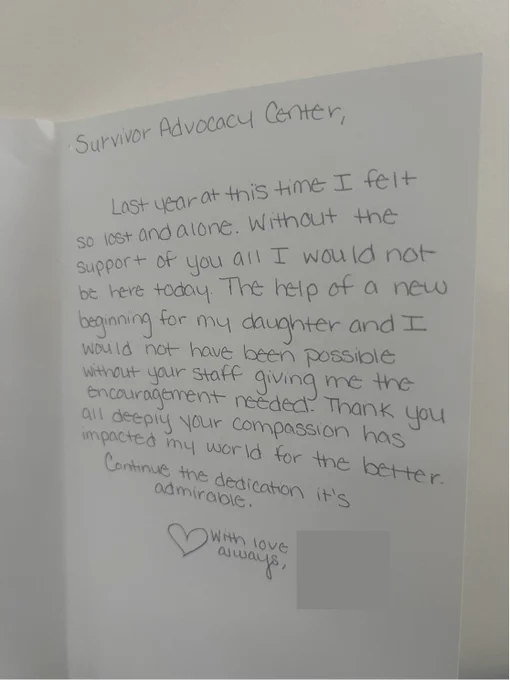 Survivor Advocacy Center,
Last year at this time I felt
so lost and alone. Without the
support of you all I would not
be here today. The help of a new
beginning for my daughter and I
would not have been possible
without your staff giving me the
encouragement needed. Thank you
all deeply your compassion has
impacted my world for the better.
Continue the dedication it's
admirable.
With love
always,